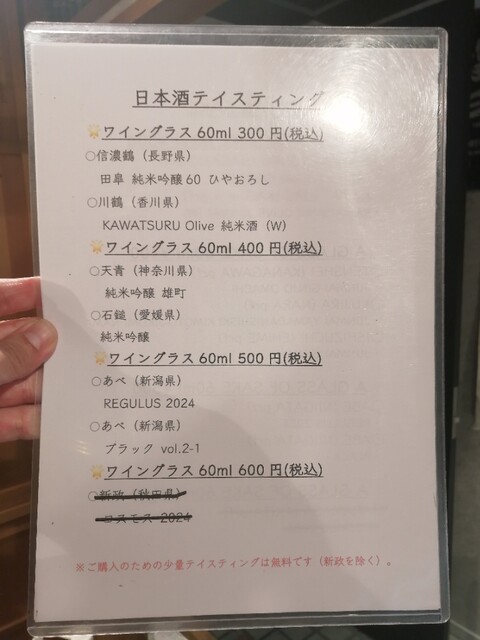 日本酒テイスティング
ワイングラス 60ml 300 円(税込)
○信濃鶴（長野県）
田皐 純米吟醸 60 ひやおろし
○川鶴（香川県）
KAWATSURU Olive 純米酒（W）
ワイングラス 60ml 400 円(税込)
○天青（神奈川県）
純米吟醸 雄町
○石鎚（愛媛県）
純米吟醸
ワイングラス 60ml 500 円(税込)
○あべ（新潟県）
REGULUS 2024
○あべ（新潟県）
ブラック vol.2-1
ワイングラス 60ml 600 円(税込)
○新政（秋田県）
コスモス 2024
※ご購入のための少量テイスティングは無料です（新政を除く）。